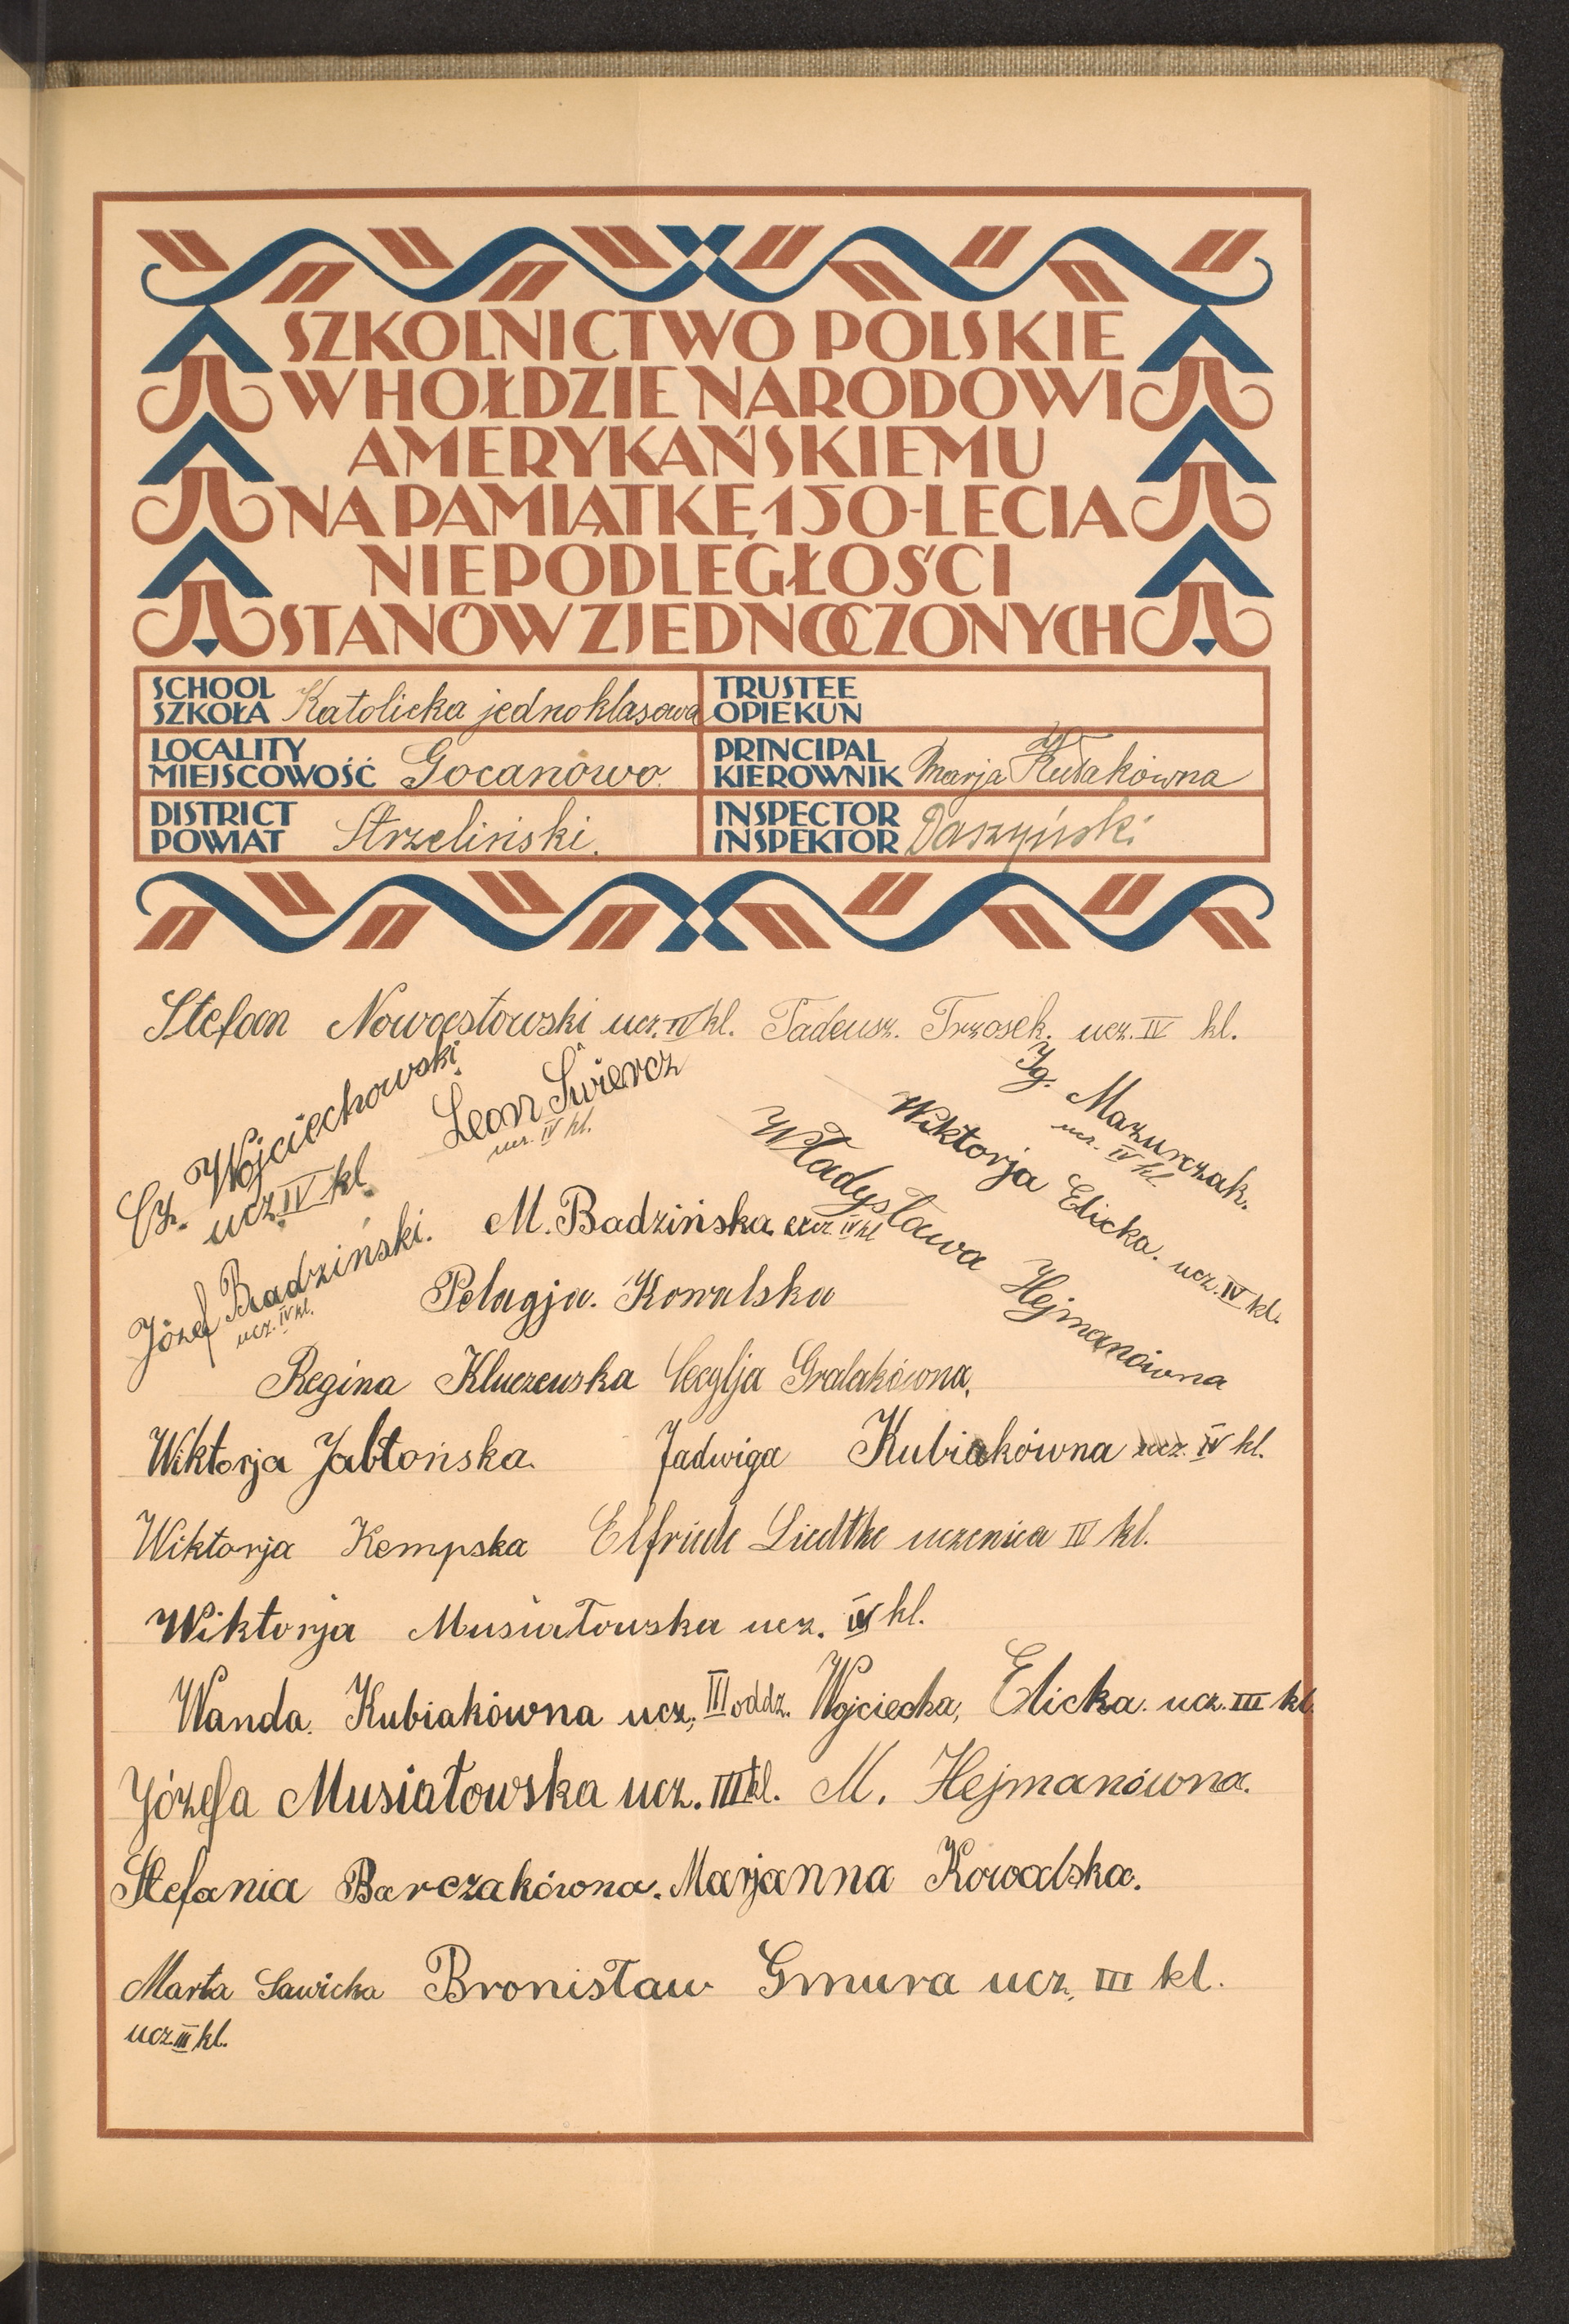 SZKOLNICTWO POLSKIE
W HOŁDZIE NARODOWI
AMERYKAŃSKIEMU
NA PAMIĄTKĘ 150-LECIA
NIEPODLEGŁOŚCI
STANÓW ZJEDNOCZONYCH
SCHOOL
SZKOŁA Katolicka jednoklasowa
TRUSTEE
OPIEKUN
LOCALITY
MIEJSCOWOŚĆ Gocanowo
PRINCIPAL
KIEROWNIK Marja Kułakówna
DISTRICT
POWIAT Strzeliński.
INSPECTOR
INSPEKTOR Daszyński
Stefan Nowostowski ucz. IV kl. Tadeusz. Trzosek. ucz. IV kl.
Cz. Wojciechowski
ucz IV kl.
Leon Świercz
ucz. IV kl.
Ig. Mazurczak.
ucz. IV kl.
Wiktorja Elicka. ucz. IV kl.
Władysława Hejmanówna
Józef Badziński.
ucz. IV kl.
M. Badzińska ucz. IV kl
Pelagja. Kowalska
Regina Kluczewska Cecylja Gralakówna.
Wiktorja Jabłońska. Jadwiga Kubiakówna ucz. IV kl.
Wiktorja Kempska Elfriede Liedtke uczenica IV kl.
Wiktorja Musiałowska ucz. IV kl.
Wanda. Kubiakówna ucz. III oddz. Wojciecha, Elicka. ucz. III kl.
Józefa Musiałowska ucz. III kl. M. Hejmanówna.
Stefania Barczakówna. Marjanna Kowalska.
Marta Sawicka Bronisław Gmura ucz. III kl.
ucz. III kl.